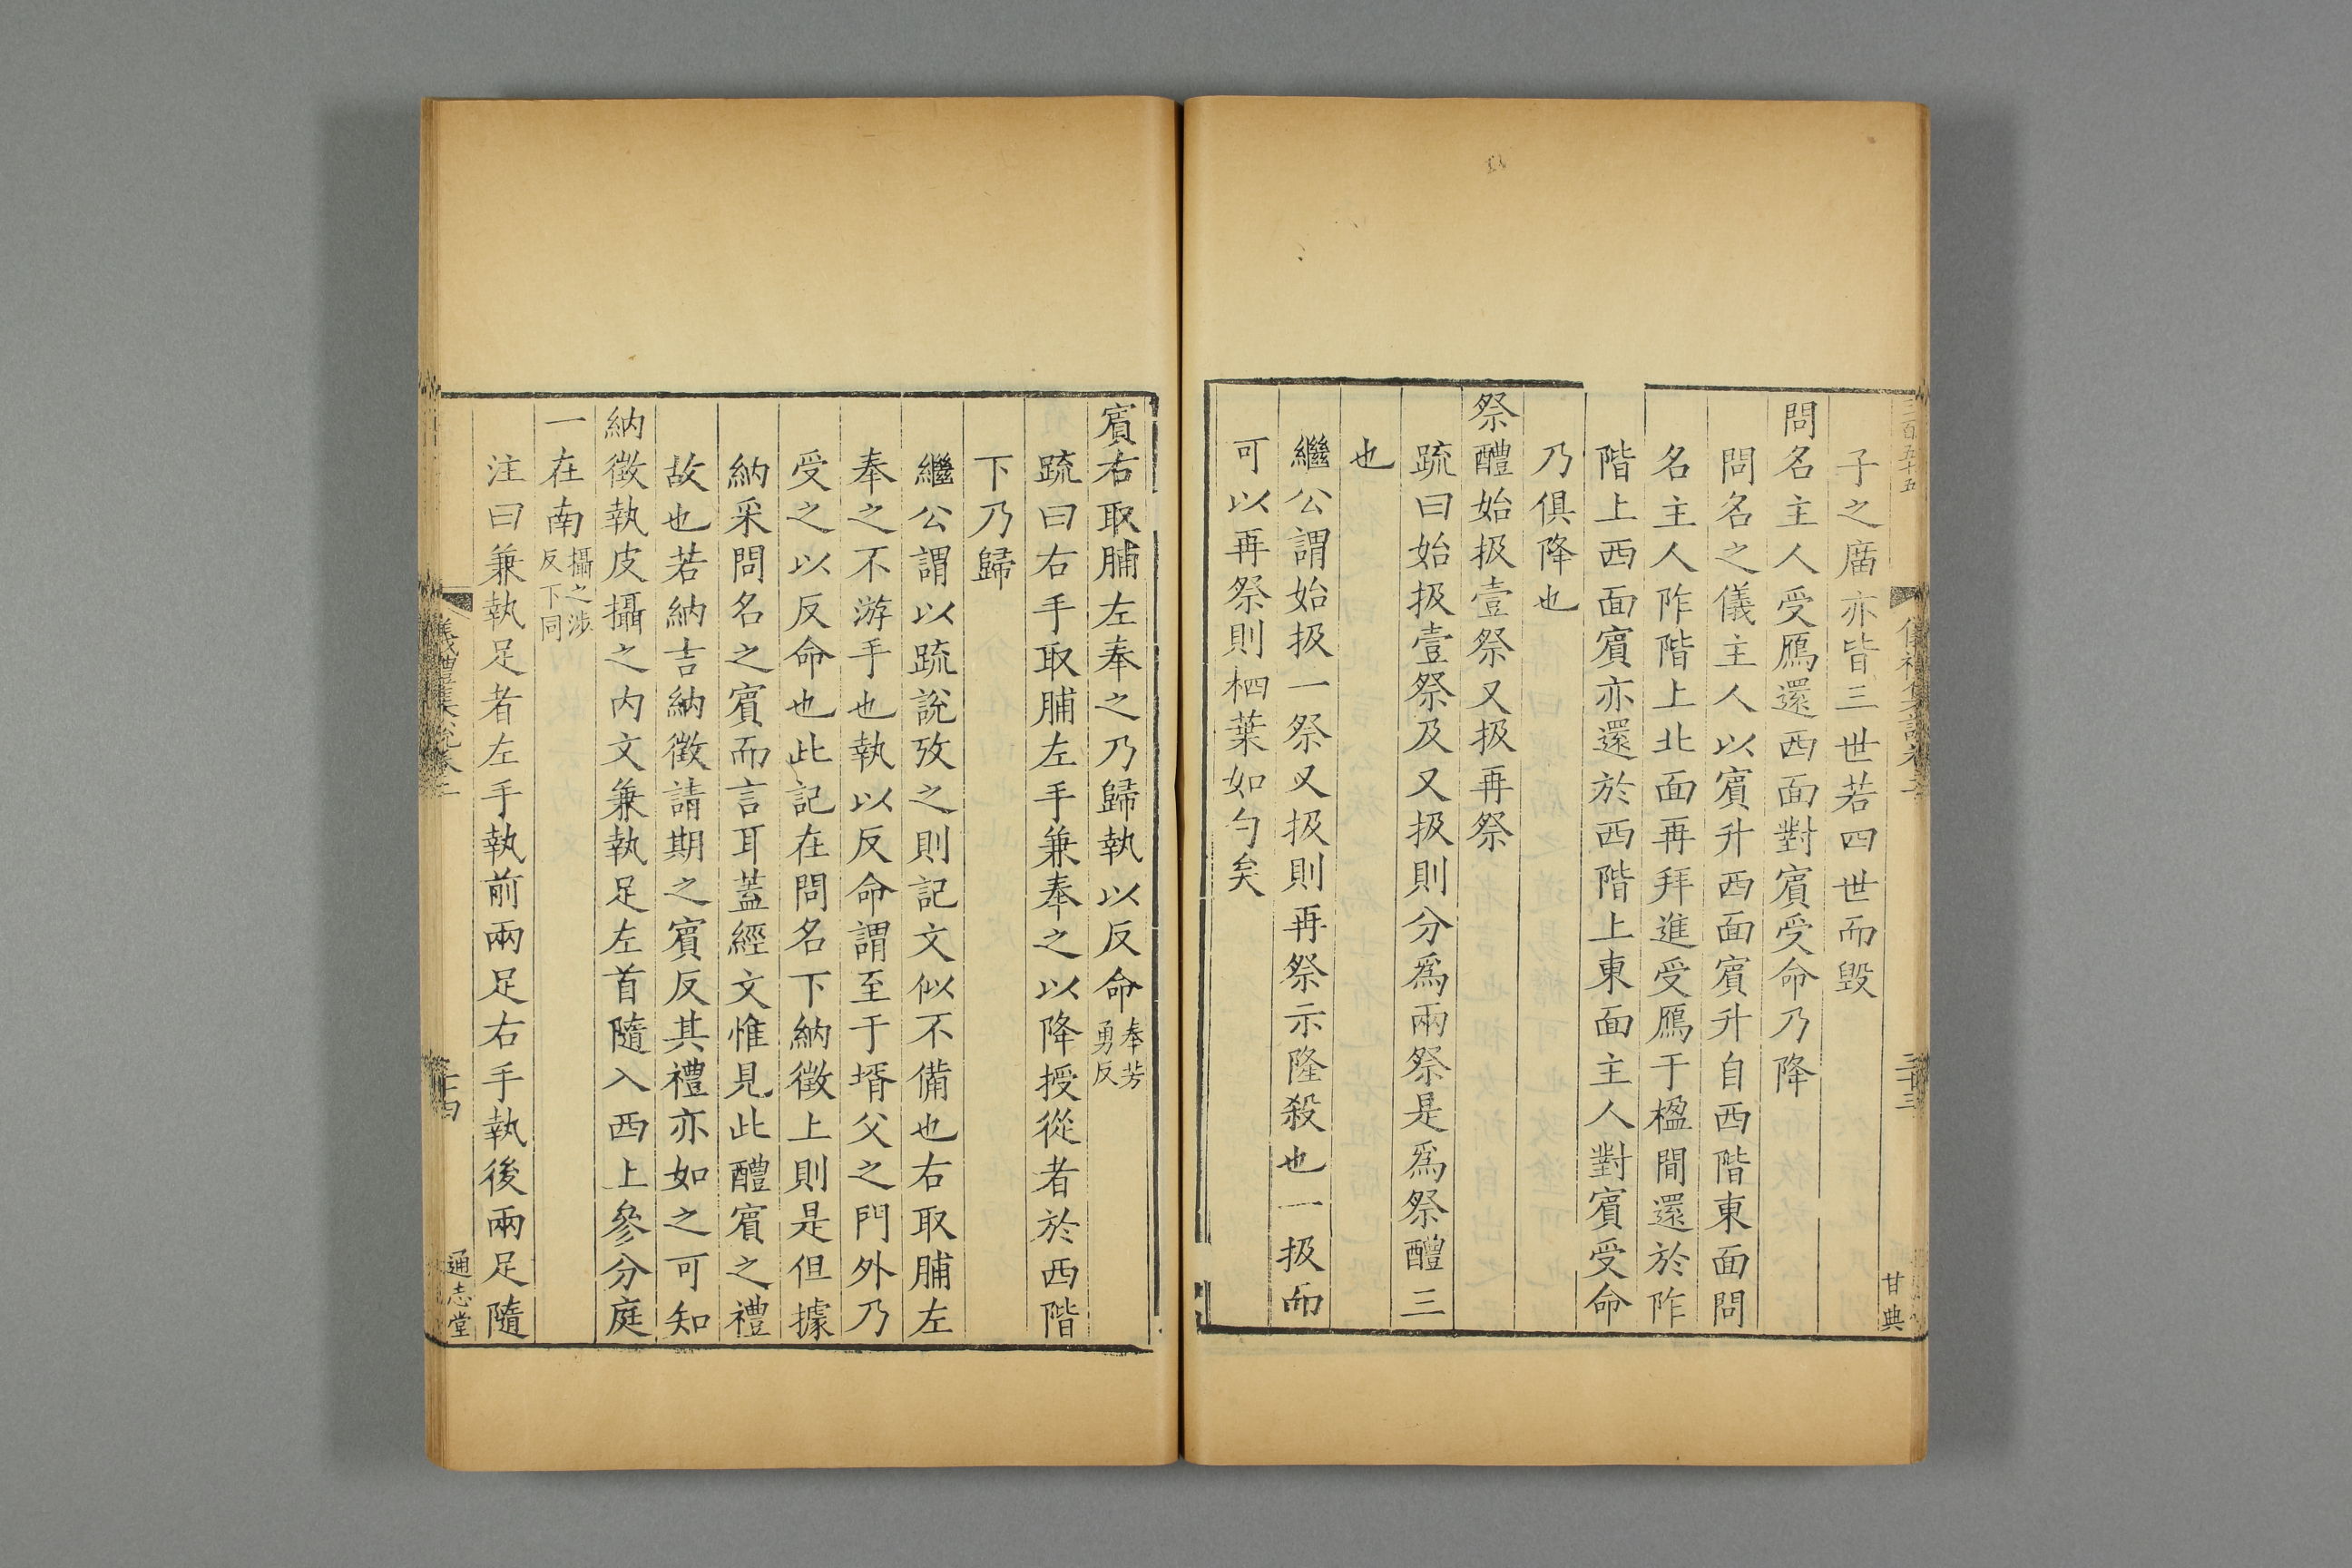 三百五十五
子之廟亦皆三世若四世而毁
問名主人受鴈還西面對賓受命乃降
問名之儀主人以賓升西面賓升自西階東面問
名主人阼階上北面再拜進受鴈于楹間還於阼
階上西面賓亦還於西階上東面主人對賓受命
乃俱降也
祭醴始扱壹祭又扱再祭
疏曰始扱壹祭及又扱則分爲兩祭是爲祭醴三
也
繼公謂始扱一祭又扱則再祭示隆殺也一扱而
可以再祭則柶葉如勺矣
甘典
賓右取脯左奉之乃歸執以反命奉芳勇反
疏曰右手取脯左手兼奉之以降授從者於西階
下乃歸
繼公謂以疏說攷之則記文似不備也右取脯左
奉之不游手也執以反命謂至于壻父之門外乃
受之以反命也此記在問名下納徵上則是但據
納采問名之賓而言耳蓋經文惟見此醴賓之禮
故也若納吉納徵請期之賓反其禮亦如之可知
納徵執皮攝之内文兼執足左首隨入西上參分庭
一在南攝之涉反下同
注曰兼執足者左手執前兩足右手執後兩足隨
儀禮集說卷二
二十四
通志堂